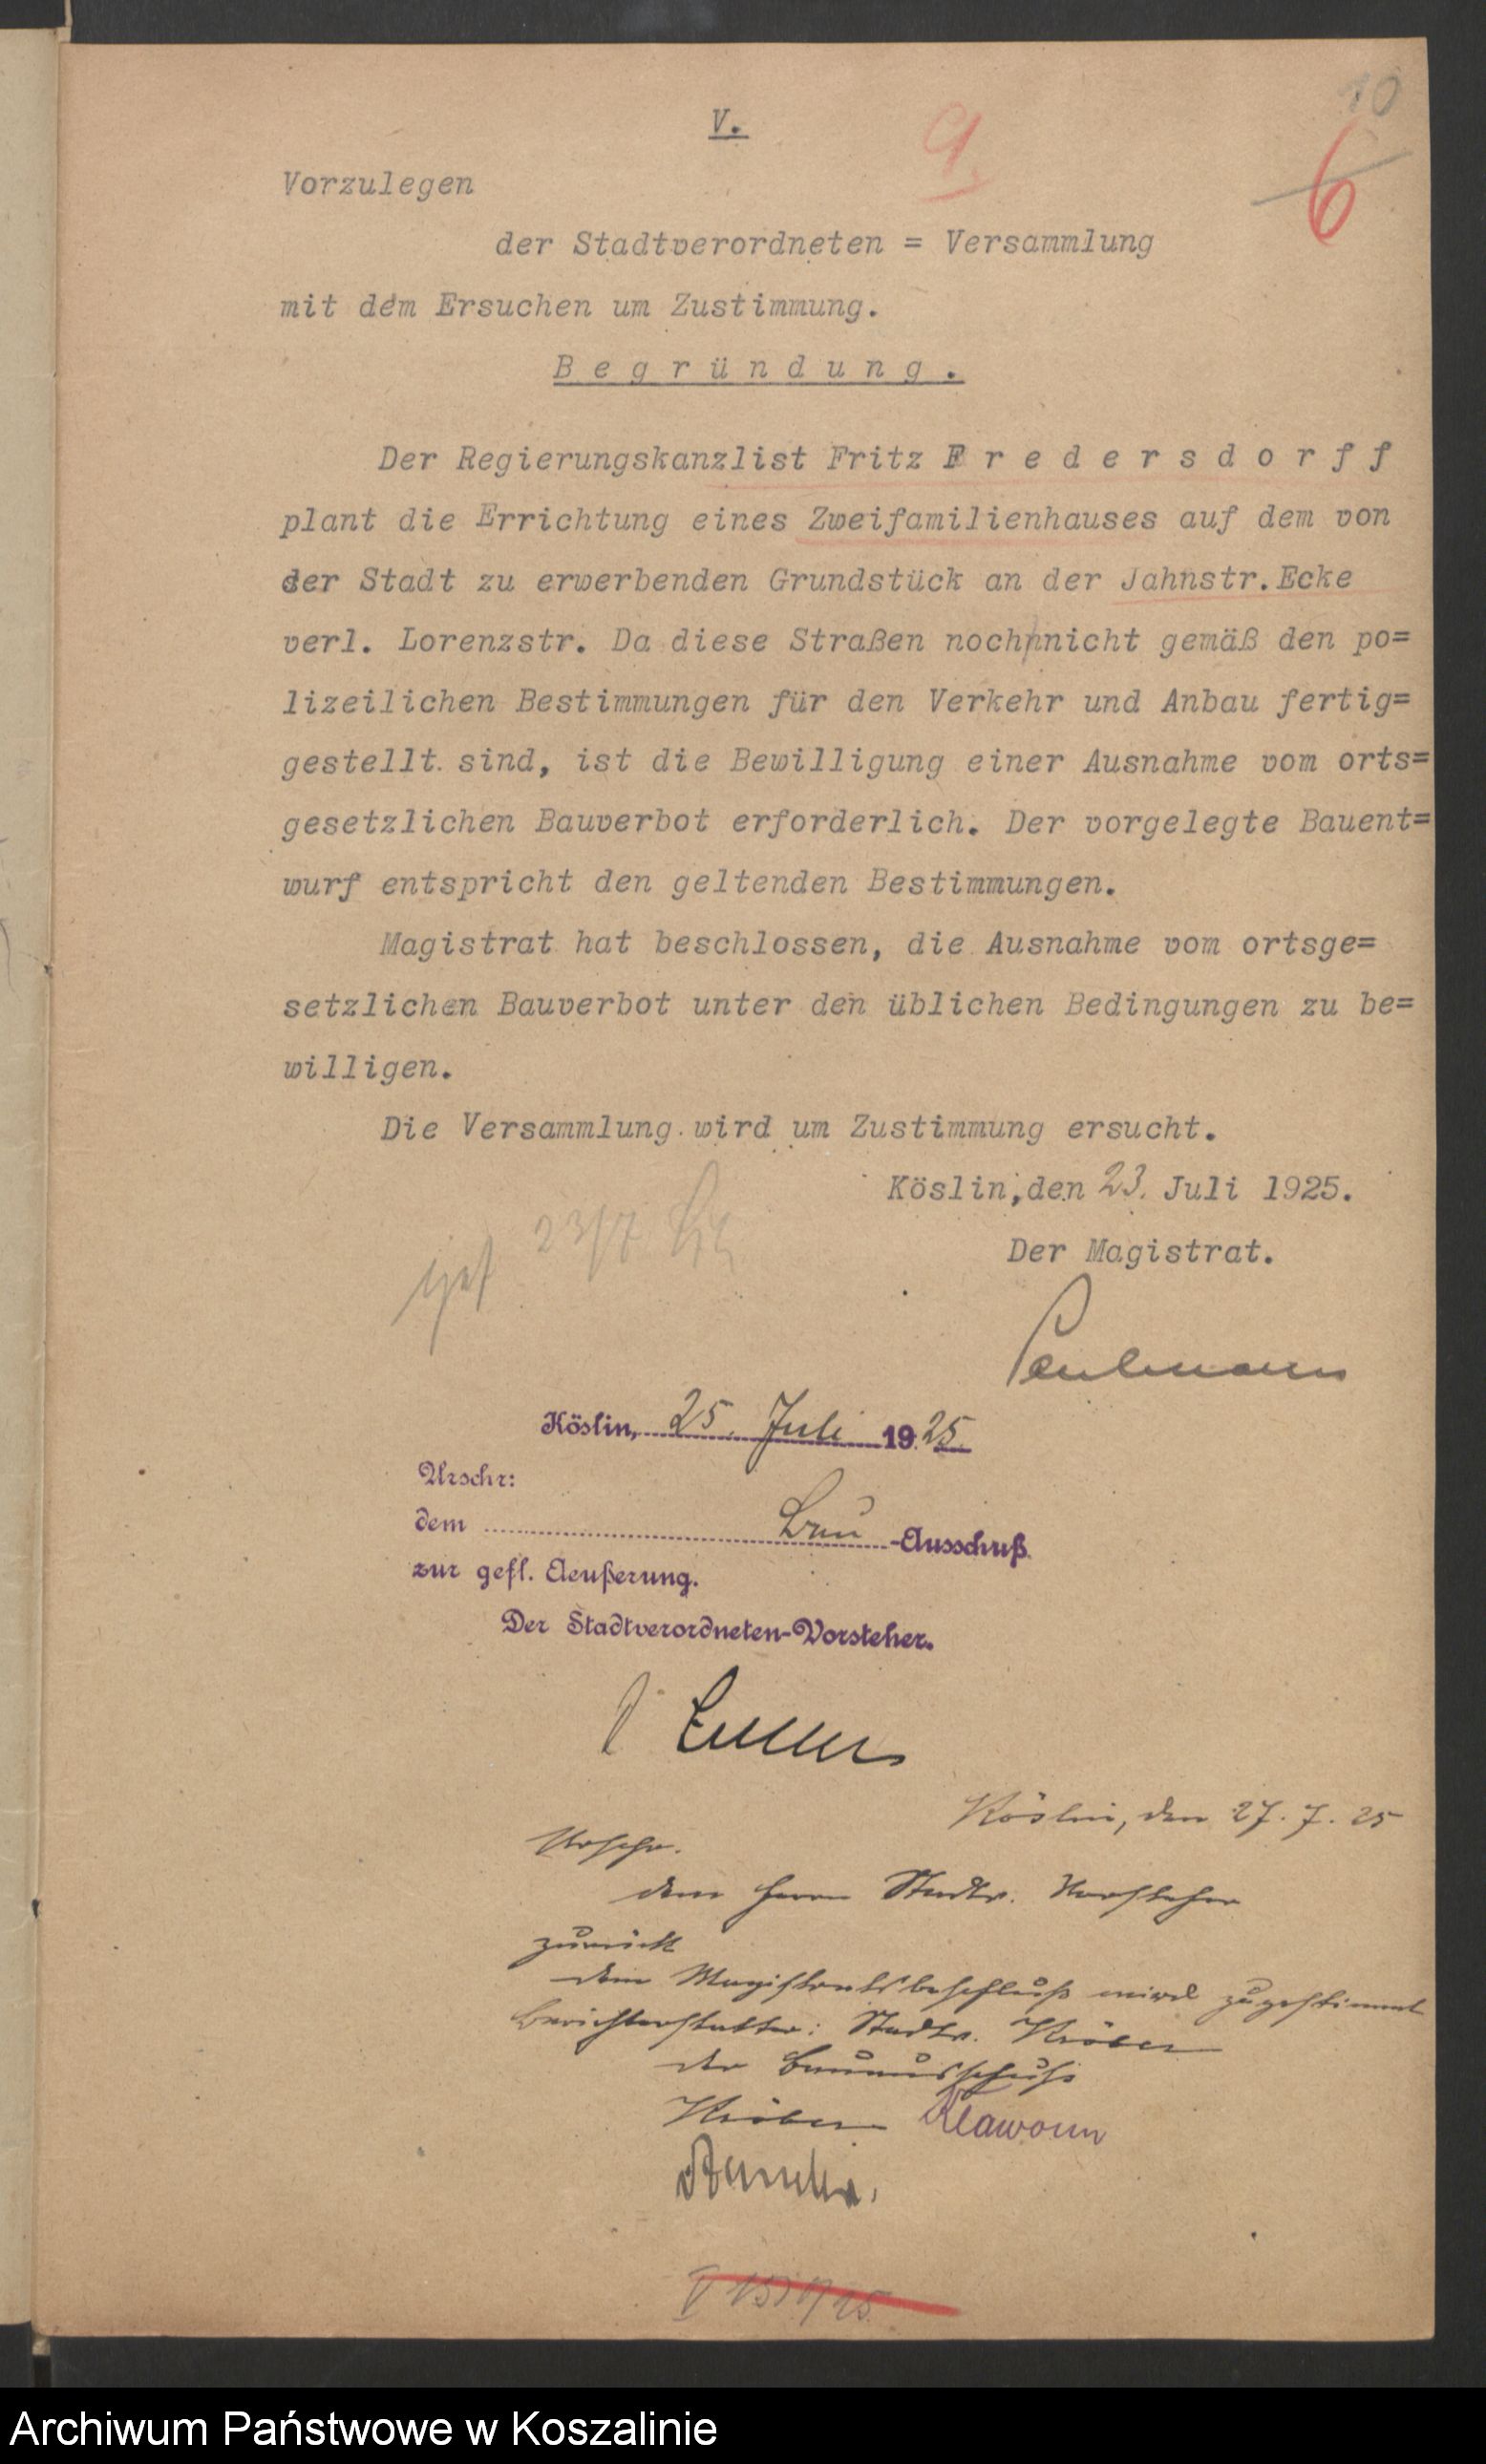 10
V.
9.
6
Vorzulegen
der Stadtverordneten = Versammlung
mit dem Ersuchen um Zustimmung.
B e g r ü n d u n g .
Der Regierungskanzlist Fritz F r e d e r s d o r f f
plant die Errichtung eines Zweifamilienhauses auf dem von
der Stadt zu erwerbenden Grundstück an der Jahnstr. Ecke
verl. Lorenzstr. Da diese Straßen noch nicht gemäß den po=
lizeilichen Bestimmungen für den Verkehr und Anbau fertig=
gestellt sind, ist die Bewilligung einer Ausnahme vom orts=
gesetzlichen Bauverbot erforderlich. Der vorgelegte Bauent=
wurf entspricht den geltenden Bestimmungen.
Magistrat hat beschlossen, die Ausnahme vom ortsge=
setzlichen Bauverbot unter den üblichen Bedingungen zu be=
willigen.
Die Versammlung wird um Zustimmung ersucht.
Köslin, den 23. Juli 1925.
23/7
Der Magistrat.
Köslin, 25. Juli 1925.
Urschr:
dem Bau-Ausschuß
zur gefl. Aeußerung.
Der Stadtverordneten-Vorsteher.
Köslin, den 27. 7. 25
Urschr.
dem Herrn Stadtv. Vorsteher
zurück
dem Magistratsbeschluß wird zugestimmt
Berichterstatter: Stadtv. Kröber
der Bauausschuß
Kröber Klawonn
Archiwum Państwowe w Koszalinie